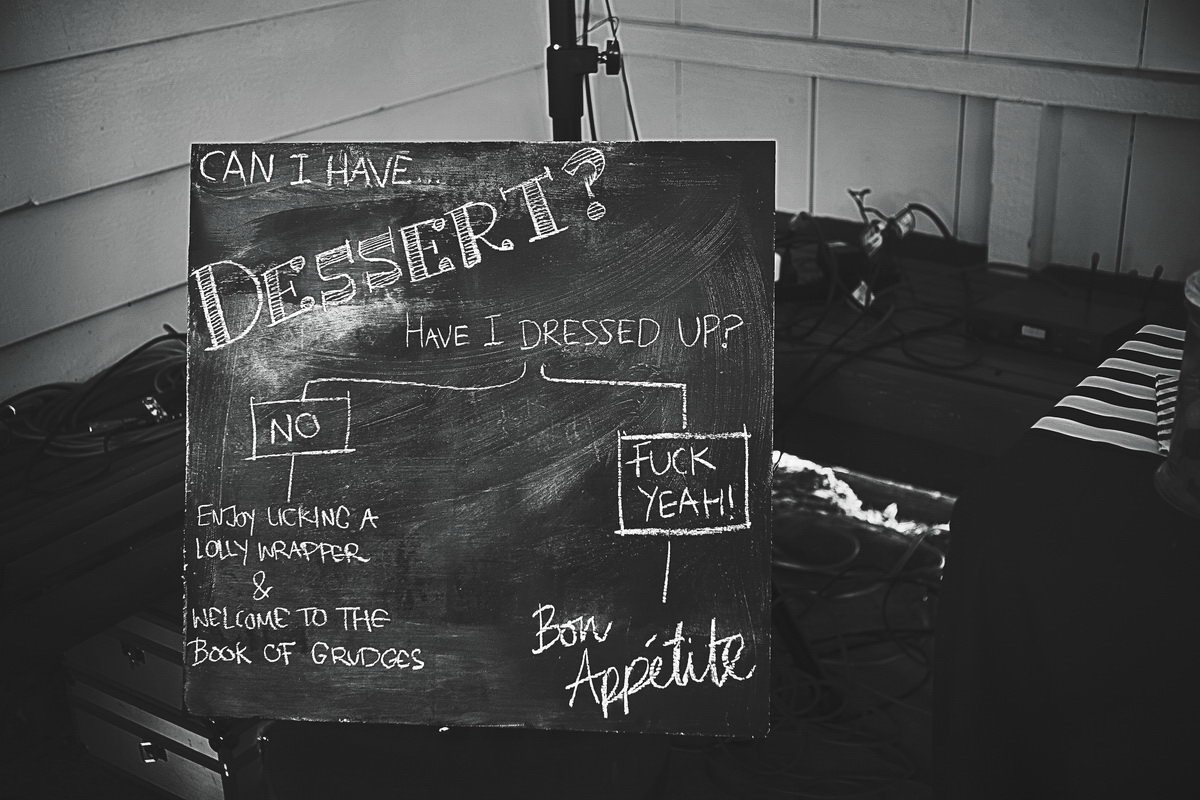 CAN I HAVE...
DESSERT?
HAVE I DRESSED UP?
NO
ENJOY LICKING A
LOLLY WRAPPER
&
WELCOME TO THE
BOOK OF GRUDGES
FUCK
YEAH!
Bon
Appétite